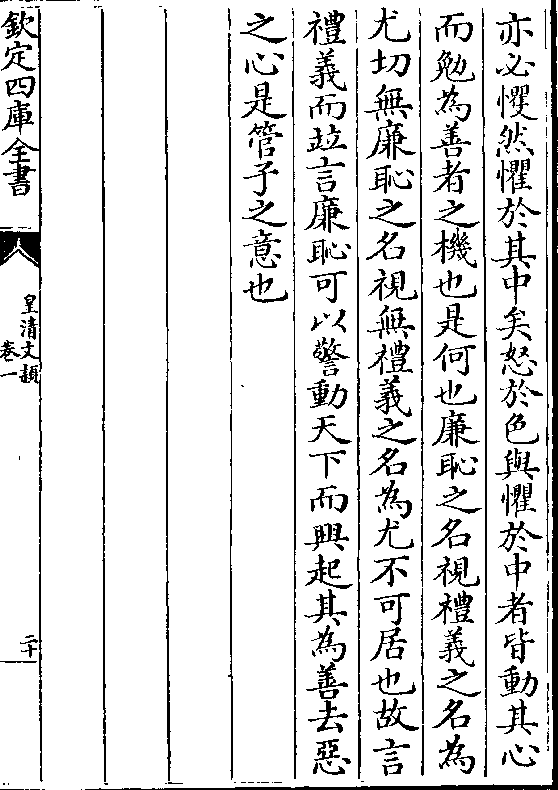 亦必戄然懼於其中矣怒於色與懼於中者皆動其心
而勉為善者之機也是何也廉恥之名視禮義之名為
尤切無廉恥之名視無禮義之名為尤不可居也故言
禮義而竝言廉恥可以警動天下而興起其為善去惡
之心是管子之意也
欽定四庫全書
皇清文頴
卷一
二十